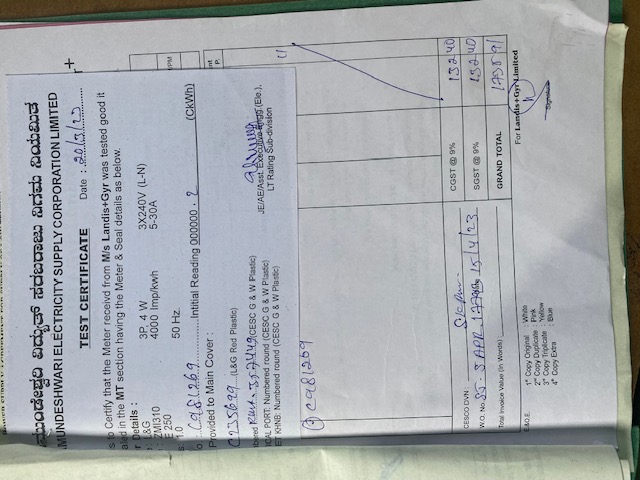 ಮುಂಡೇಶ್ವರಿ ವಿದ್ಯುತ್ ಸರಬರಾಜು ನಿಗಮ ನಿಯಮಿತ
AMUNDESHWARI ELECTRICITY SUPPLY CORPORATION LIMITED
TEST CERTIFICATE
Date : 20/3/23
s to Certify that the Meter receivd from M/s Landis+Gyr was tested good it
in the MT section having the Meter & Seal details as below.
r Details :
: L&G
3P. 4 W
3X240V (L-N)
ZMI310
4000 Imp/kwh
5-30A
E 250
s: 1.0
50 Hz.
o : C981269
Initial Reading 000000.2
(CKWh)
Provided to Main Cover :
C235699 (L&G Red Plastic)
(CESC G & W Plastic)
PORT: Numbered round (CESC G & W Plastic)
KHNB: Numbered round (CESC G & W Plastic)
JE/AE/Asst. Executive Engg (Ele.),
LT Rating Sub-division
C981269
CESCO DVN :
W.O. No.
15/4/23
Total Invoice Value (in Words) :
CGST @ 9%
13240
SGST @ 9%
13240
GRAND TOTAL
E.&O.E.
1st Copy Original : White
2nd Copy Duplicate : Pink
3rd Copy Triplicate : Yellow
4th Copy Extra : Blue
For Landis+Gyr Limited
Signature